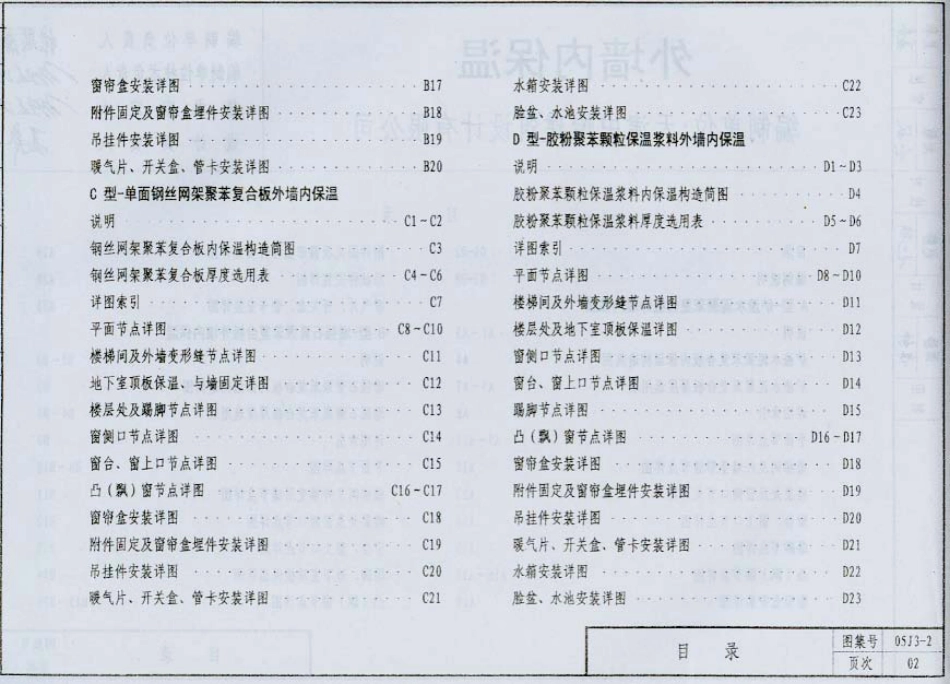 窗帘盒安装详图 B17
附件固定及窗帘盒埋件安装详图 B18
吊挂件安装详图 B19
暖气片、开关盒、管卡安装详图 B20
C 型-单面钢丝网架聚苯复合板外墙内保温
说明 C1~C2
钢丝网架聚苯复合板内保温构造简图 C3
钢丝网架聚苯复合板厚度选用表 C4~C6
详图索引 C7
平面节点详图 C8~C10
楼梯间及外墙变形缝节点详图 C11
地下室顶板保温、与墙固定详图 C12
楼层处及踢脚节点详图 C13
窗侧口节点详图 C14
窗台、窗上口节点详图 C15
凸(飘)窗节点详图 C16~C17
窗帘盒安装详图 C18
附件固定及窗帘盒埋件安装详图 C19
吊挂件安装详图 C20
暖气片、开关盒、管卡安装详图 C21
水箱安装详图 C22
脸盆、水池安装详图 C23
D 型-胶粉聚苯颗粒保温浆料外墙内保温
说明 D1~D3
胶粉聚苯颗粒保温浆料内保温构造简图 D4
胶粉聚苯颗粒保温浆料厚度选用表 D5~D6
详图索引 D7
平面节点详图 D8~D10
楼梯间及外墙变形缝节点详图 D11
楼层处及地下室顶板保温详图 D12
窗侧口节点详图 D13
窗台、窗上口节点详图 D14
踢脚节点详图 D15
凸(飘)窗节点详图 D16~D17
窗帘盒安装详图 D18
附件固定及窗帘盒埋件安装详图 D19
吊挂件安装详图 D20
暖气片、开关盒、管卡安装详图 D21
水箱安装详图 D22
脸盆、水池安装详图 D23
目 录
图集号 05J3-2
页次 02